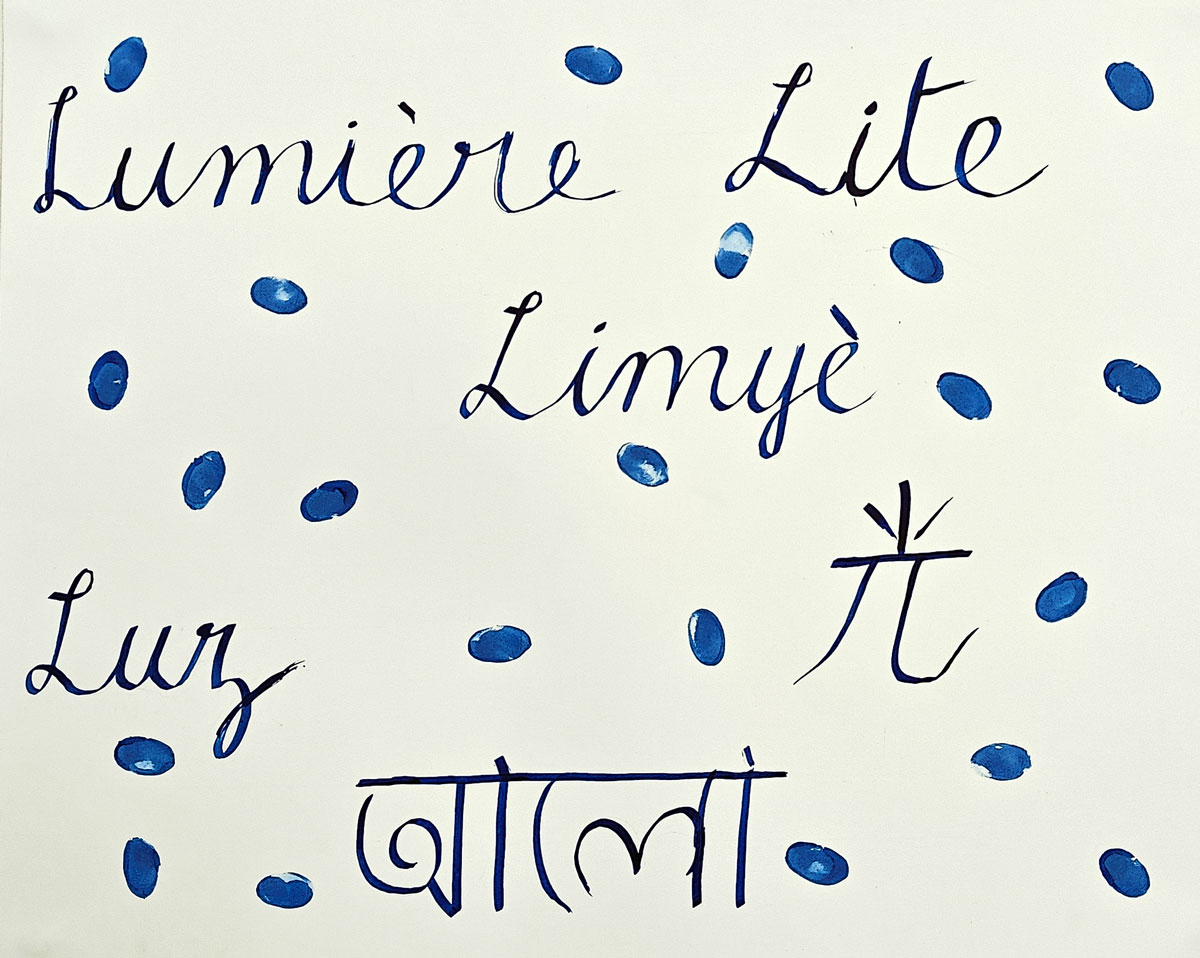 Lumière Lite
Limyè
光
Luz
আলো